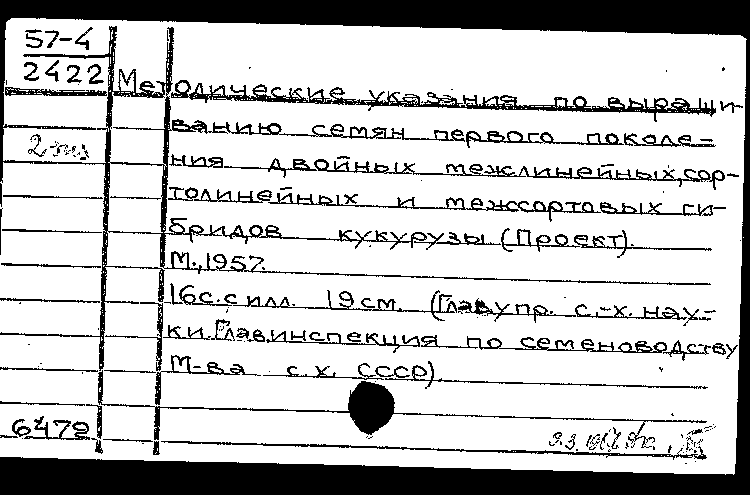 57-4
2422
Методические указания по выращи-
ванию семян первого поколе-
2 экз
ния двойных межлинейных, сор-
толинейных и межсортовых ги-
бридов кукурузы (Проект).
М., 1957.
16с. с илл. 19см. (Глав упр. с.-х. нау-
ки. Глав. инспекция по семеноводству
М-ва с.х. СССР).
6472